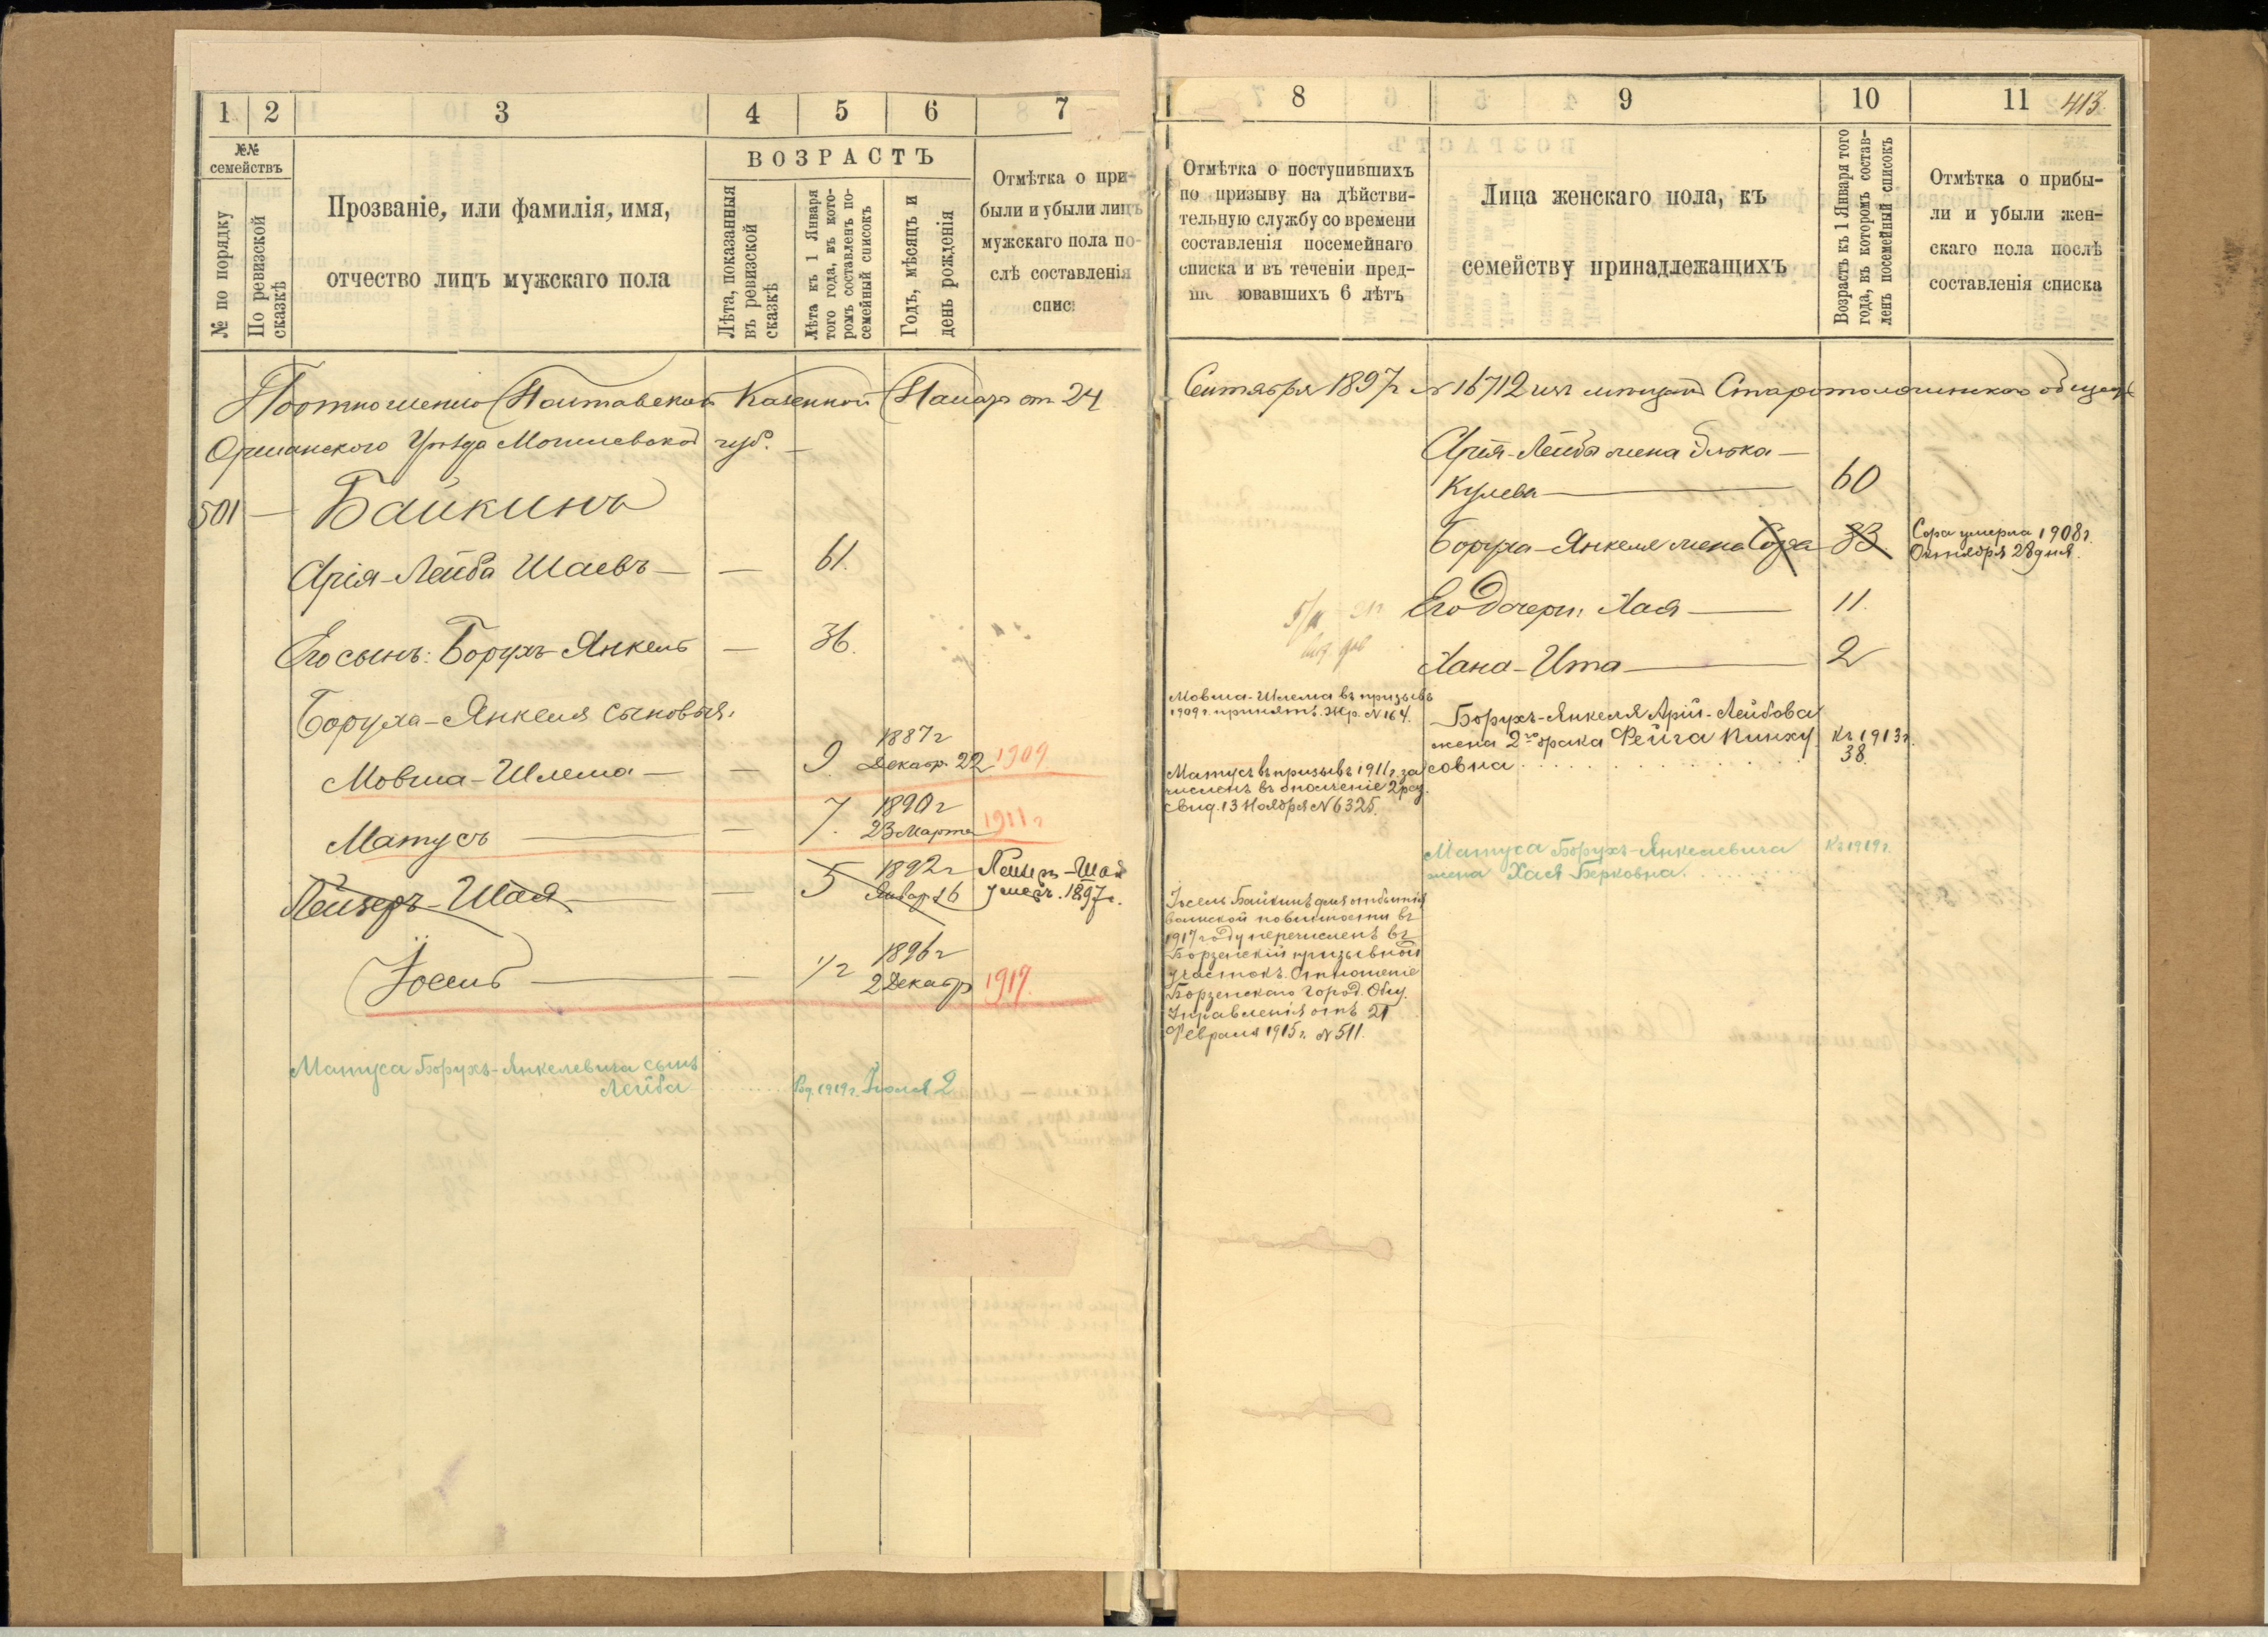 1 2 3 4 5 6 7
№№ семействъ
№ по порядку
По ревизской сказкѣ
Прозваніе, или фамилія, имя,
отчество лицъ мужскаго пола
ВОЗРАСТЪ
Лѣта, показанныя
въ ревизской
сказкѣ
Лѣта къ 1 Января
того года, въ кото-
ромъ составленъ по-
семейный списокъ
Годъ, мѣсяцъ и
день рожденія
Отмѣтка о при-
были и убыли лицъ
мужскаго пола по-
слѣ составленія
спис
По отношенію Полтавской Казенной Палаты от 24
Оршанского Уѣзда Могилевской губ.
501 — Байкинъ
Арія-Лейба Шаевъ — — 61.
Его сынъ: Борухъ-Янкель — 36.
Боруха-Янкеля сыновья:
Мовша-Шлема — — 9 1887г
Декабр. 22 1909.
Матусъ — — 7. 1890г
23 Марта 1911г
Лейзеръ-Шая — — 5 1892г
Январ. 16
Лейзеръ-Шая
умеръ. 1897г.
Іосель — — 1/2 1896г
2 Декабр 1917.
Матуса Борухъ-Янкелевича сынъ
Лейба Род. 1919г. Іюля 2
8 9 10 11 413.
Отмѣтка о поступившихъ
по призыву на дѣйстви-
тельную службу со времени
составленія посемейнаго
списка и въ теченіи пред-
ше овавшихъ 6 лѣтъ
Лица женскаго пола, къ
семейству принадлежащихъ
Возрастъ къ 1 Января того
года, въ которомъ состав-
ленъ посемейный списокъ
Отмѣтка о прибы-
ли и убыли жен-
скаго пола послѣ
составленія списка
Сентября 1897г № 16712 изъ мѣщанъ Старотолочинского общест
Арія-Лейбы жена Элька —
Кулева — 60
Боруха-Янкеля жена Сора 33
Сора умерла 1908г.
Октября 28 дня.
Его дочери: Хая — 11.
Хана-Ита — 2
Мовша-Шлема въ призывъ
1909г. принятъ. Жр. №164.
Борухъ-Янкеля Арій-Лейбова
жена 2го брака Фейга Пинху
совна
Къ 1913г.
38.
Матусъ въ призывъ 1911г. за
численъ въ ополченіе 2 раз.
свид. 13 Ноября №6325.
Матуса Борухъ-Янкелевича
жена Хася Берковна.
Къ 1919г.
Іосель Байкинъ для отбытія
воинской повинности въ
1917 году перечисленъ въ
Борзенскій призывной
участокъ. Отношеніе
Борзенскаго Город. Общ.
Управленія отъ 21
Февраля 1915г. №511.